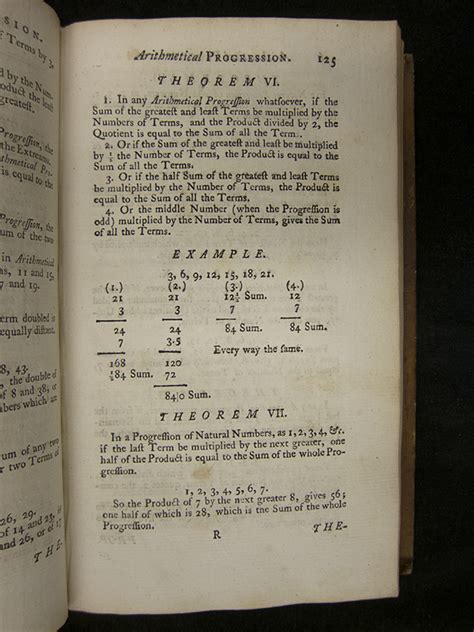 SSION.
of Terms by 3,
ed by the Num-
Product and leaſt
greateſt.
Progreſſion, the
the Extreams,
ithmetical Pro-
in Arithmetical
ms, 11 and 15,
7 and 19.
Term doubled is
equally diſtant.
, 43.
the double of
of 8 and 38, or
mbers which are
ſum of any two
r two Terms of
26, 29.
of 14 and 23, is
and 26, or of 17
THE-
Arithmetical PROGRESSION. 125
THEOREM VI.
1. In any Arithmetical Progreſſion whatſoever, if the
Sum of the greateſt and leaſt Terms be multiplied by the
Numbers of Terms, and the Product divided by 2, the
Quotient is equal to the Sum of all the Term.
2. Or if the Sum of the greateſt and leaſt be multiplied
by ½ the Number of Terms, the Product is equal to the
Sum of all the Terms.
3. Or if the half Sum of the greateſt and leaſt Terms
be multiplied by the Number of Terms, the Product is
equal to the Sum of all the Terms.
4. Or the middle Number (when the Progreſſion is
odd) multiplied by the Number of Terms, gives the Sum
of all the Terms.
EXAMPLE.
3, 6, 9, 12, 15, 18, 21.
(1.) (2.) (3.) (4.)
21 21 12½ Sum. 12
3 3 7 7
24 24 84 Sum. 84 Sum.
7 3.5 Every way the same.
168 120
½84 Sum. 72
84|0 Sum.
THEOREM VII.
In a Progreſſion of Natural Numbers, as 1, 2, 3, 4, &c.
if the laſt Term be multiplied by the next greater, one
half of the Product is equal to the Sum of the whole Pro-
greſſion.
1, 2, 3, 4, 5, 6, 7.
So the Product of 7 by the next greater 8, gives 56;
one half of which is 28, which is the Sum of the whole
Progreſſion.
R THE-